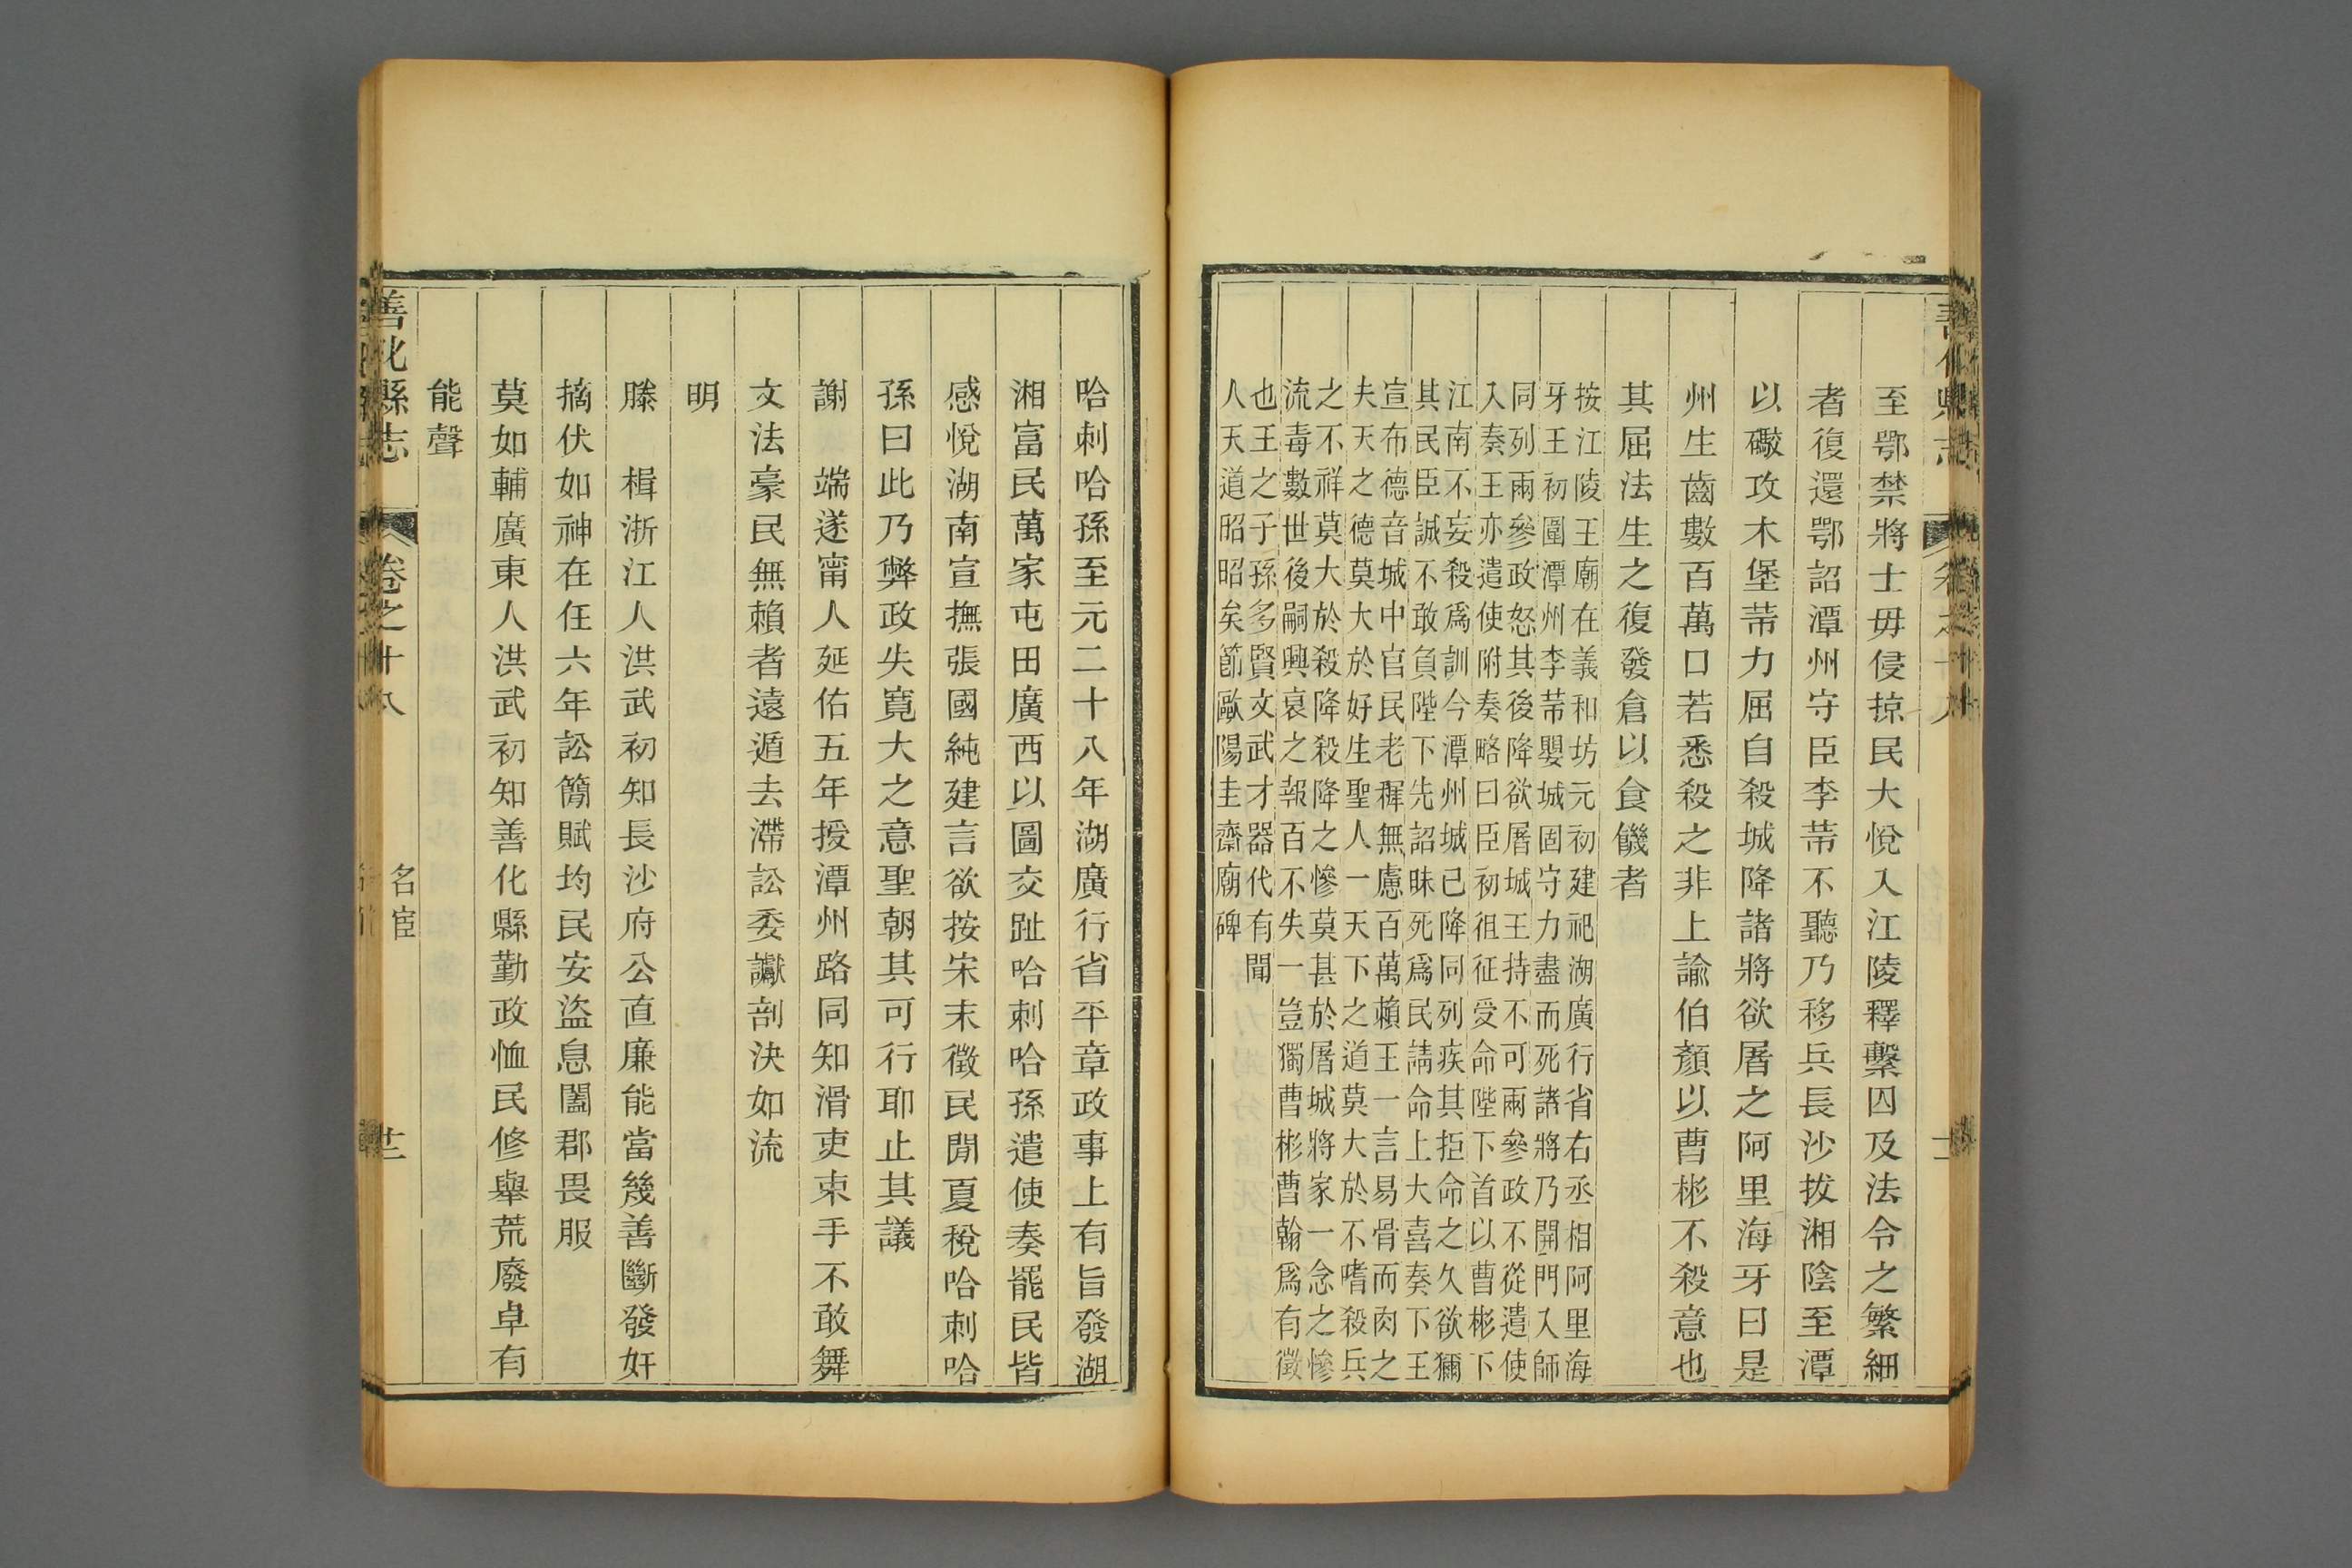 善化縣志 卷之十八
至鄂禁將士毋侵掠民大悅入江陵釋繫囚及法令之繁細
者復還鄂詔潭州守臣李芾不聽乃移兵長沙拔湘陰至潭
以礮攻木堡芾力屈自殺城降諸將欲屠之阿里海牙曰是
州生齒數百萬口若悉殺之非上諭伯顏以曹彬不殺意也
其屈法生之復發倉以食饑者
按江陵王廟在義和坊元初建祀湖廣行省右丞相阿里海
牙王初圍潭州李芾嬰城固守力盡而死諸將乃開門入師
同列兩參政怒其後降欲屠城王持不可兩參政不從遣使
入奏王亦遣使附奏略曰臣初徂征受命陛下首以曹彬下
江南不妄殺爲訓今潭州城已降同列疾其拒命之久欲獮
其民臣誠不敢負陛下先詔昧死爲民請命上大喜奏下王
宣布德音城中官民老穉無慮百萬賴王一言易骨而肉之
夫天之德莫大於好生聖人一天下之道莫大於不嗜殺兵
之不祥莫大於殺降殺降之慘莫甚於屠城將家一念之慘
流毒數世後嗣興哀之報百不失一豈獨曹彬曹翰爲有徵
也王之子孫多賢文武才器代有聞
人天道昭昭矣節歐陽圭齋廟碑
哈剌哈孫至元二十八年湖廣行省平章政事上有旨發湖
湘富民萬家屯田廣西以圖交趾哈剌哈孫遣使奏罷民皆
感悅湖南宣撫張國純建言欲按宋末徵民閒夏稅哈剌哈
孫曰此乃弊政失寬大之意聖朝其可行耶止其議
謝　端遂甯人延佑五年授潭州路同知滑吏束手不敢舞
文法豪民無賴者遠遁去滯訟委讞剖決如流
明
滕　楫浙江人洪武初知長沙府公直廉能當幾善斷發奸
摘伏如神在任六年訟簡賦均民安盜息闔郡畏服
莫如輔廣東人洪武初知善化縣勤政恤民修舉荒廢卓有
能聲
善化縣志 卷之十八 名宦